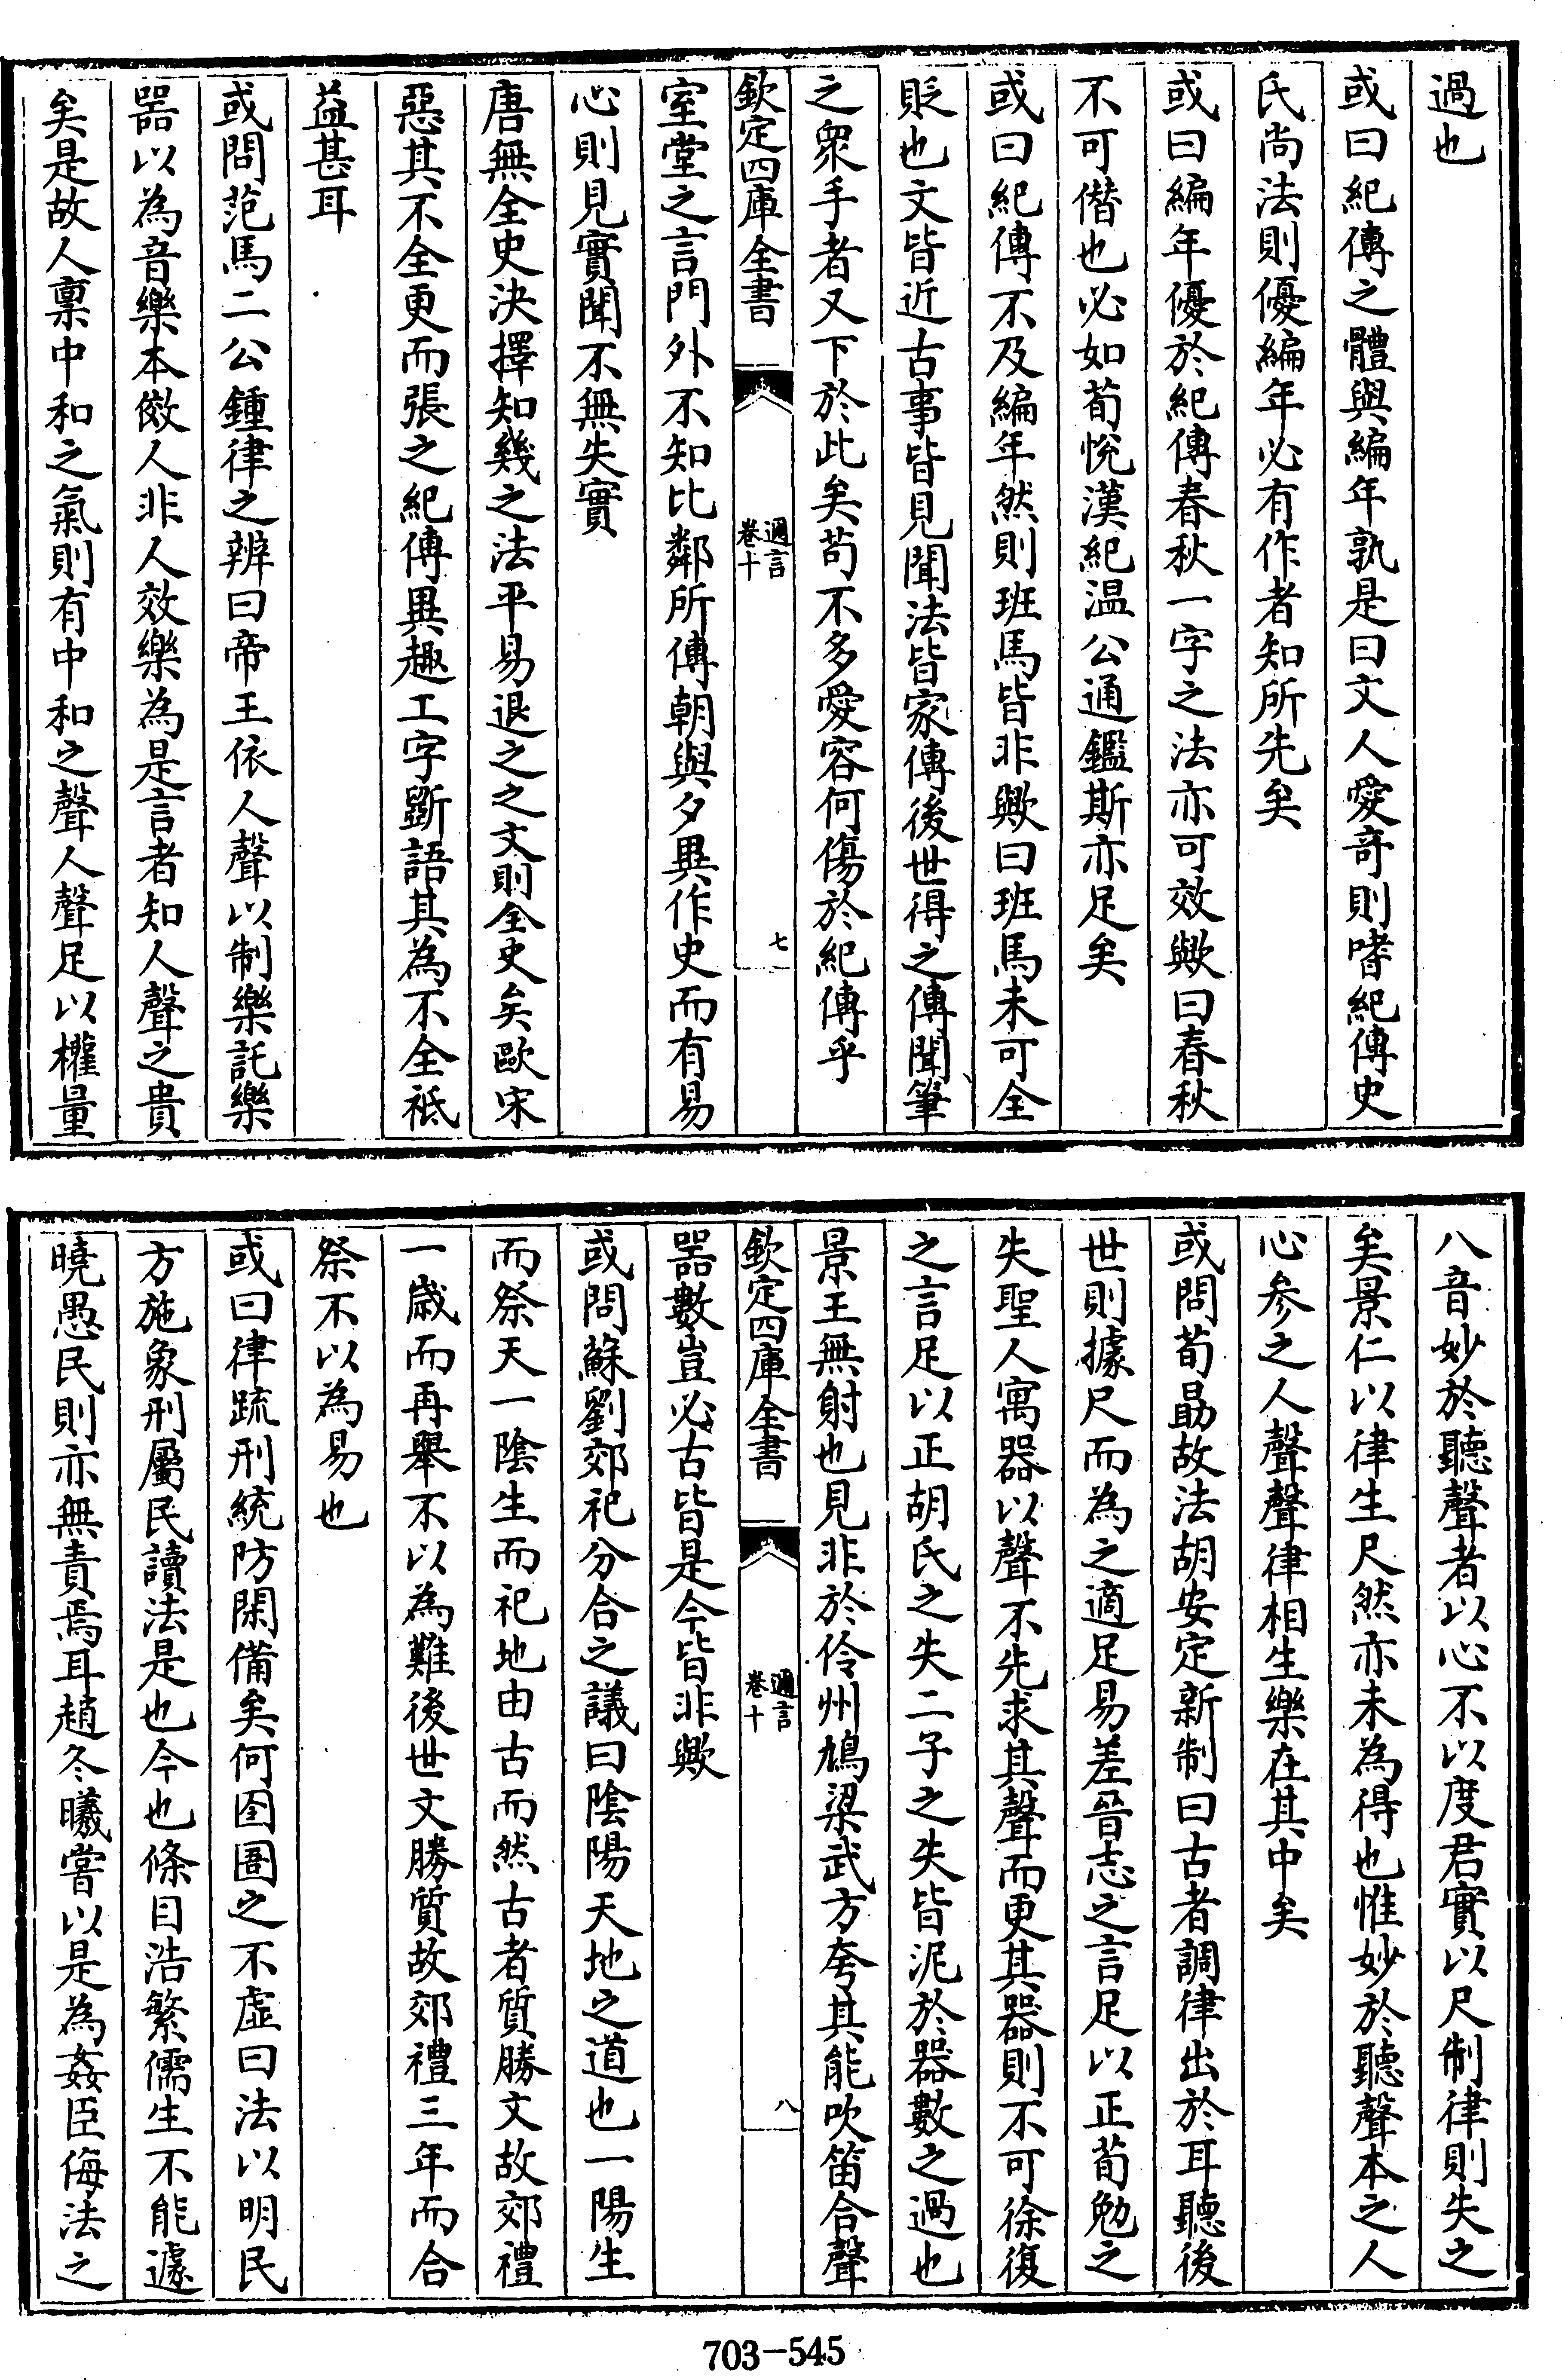 過也
或曰紀傳之體與編年孰是曰文人愛竒則嗜紀傳史
氏尚法則優編年必有作者知所先矣
或曰編年優於紀傳春秋一字之法亦可效歟曰春秋
不可僣也必如荀悅漢紀温公通鑑斯亦足矣
或曰紀傳不及編年然則班馬皆非歟曰班馬未可全
貶也文皆近古事皆見聞法皆家傳後世得之傳聞筆
之衆手者又下於此矣苟不多愛容何傷於紀傳乎
欽定四庫全書
邇言
卷十
七
室堂之言門外不知比鄰所傳朝與夕異作史而有易
心則見實聞不無失實
唐無全史決擇知幾之法平易退之之文則全史矣歐宋
惡其不全更而張之紀傳異趣工字斵語其為不全祗
益甚耳
或問范馬二公鍾律之辨曰帝王依人聲以制樂託樂
器以為音樂本倣人非人效樂為是言者知人聲之貴
矣是故人禀中和之氣則有中和之聲人聲足以權量
八音妙於聽聲者以心不以度君實以尺制律則失之
矣景仁以律生尺然亦未為得也惟妙於聽聲本之人
心參之人聲聲律相生樂在其中矣
或問荀勗故法胡安定新制曰古者調律出於耳聽後
世則據尺而為之適足易差晉志之言足以正荀勉之
失聖人寓器以聲不先求其聲而更其器則不可徐復
之言足以正胡氏之失二子之失皆泥於器數之過也
景王無射也見非於伶州鳩梁武方夸其能吹笛合聲
欽定四庫全書
邇言
卷十
八
器數豈必古皆是今皆非歟
或問蘇劉郊祀分合之議曰陰陽天地之道也一陽生
而祭天一陰生而祀地由古而然古者質勝文故郊禮
一歲而再舉不以為難後世文勝質故郊禮三年而合
祭不以為易也
或曰律疏刑統防閑備矣何囹圄之不虛曰法以明民
方施象刑屬民讀法是也今也條目浩繁儒生不能遽
曉愚民則亦無責焉耳趙冬曦嘗以是為姦臣侮法之
703-545